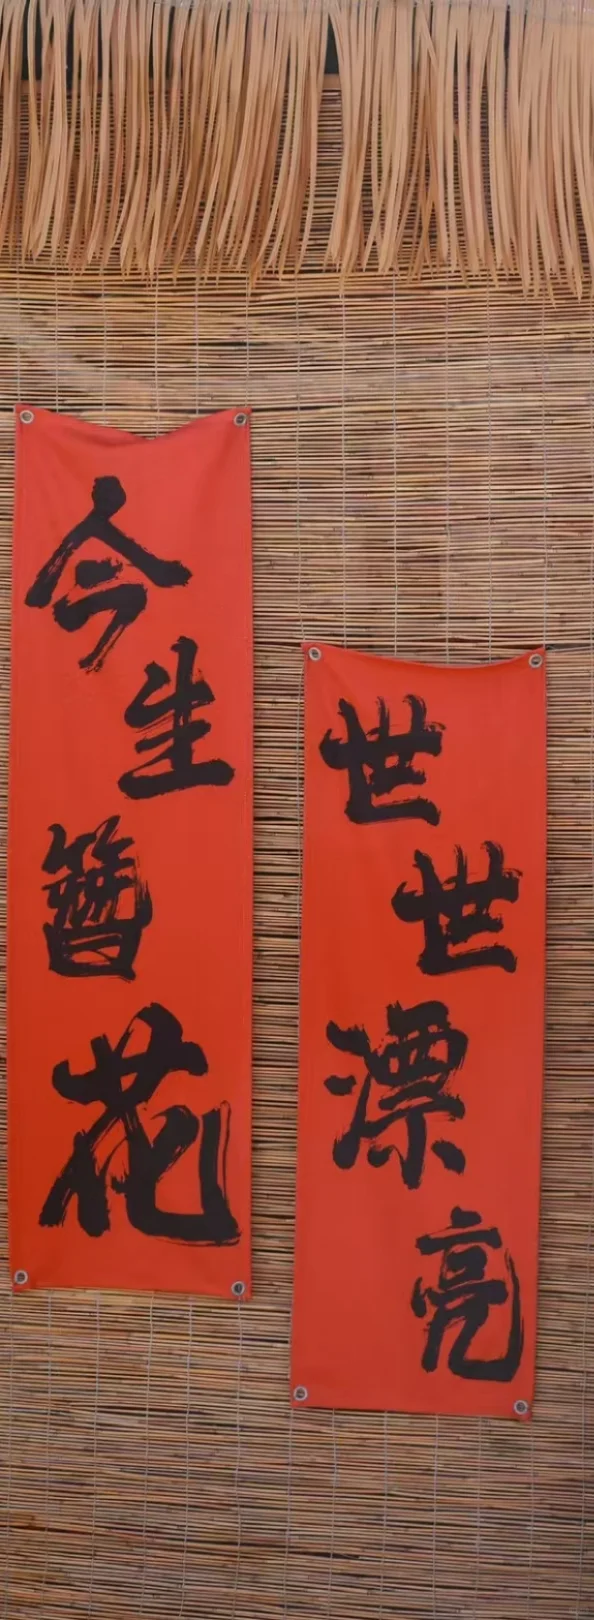 今生簪花
世世漂亮